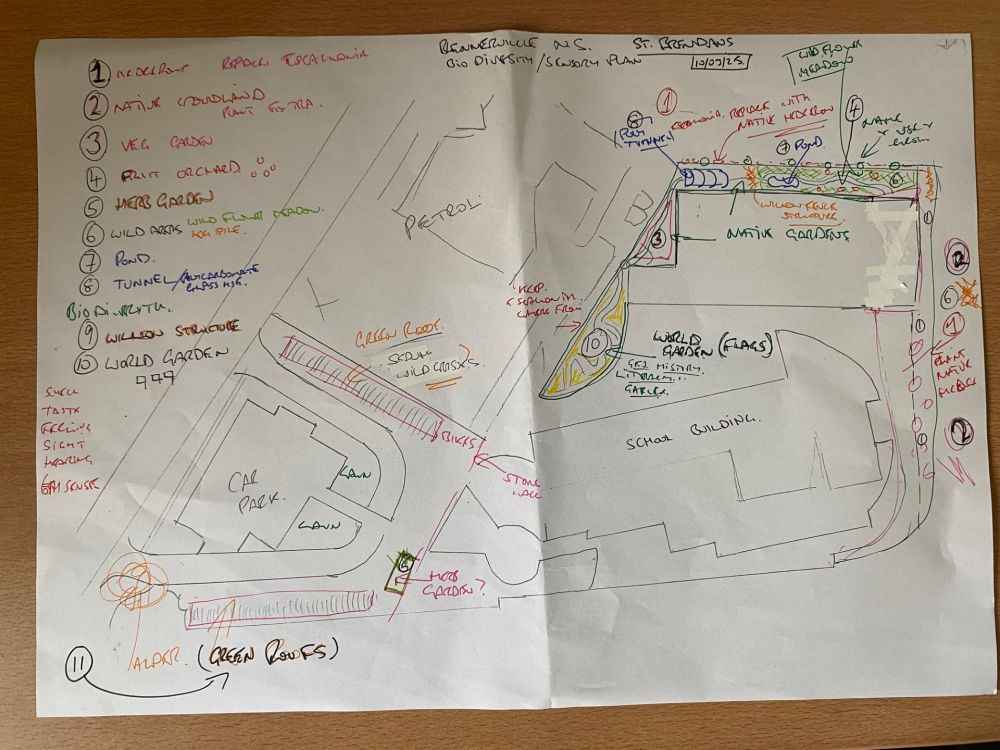 BENNERVILLE N.S. ST. BRENDANS
BIO DIVERSITY/SENSORY PLAN 10/09/25.
1 HEDGEROW REPLACE ESCALLONIA
2 NATIVE WOODLAND
PLANT EXTRA.
3 VEG GARDEN
4 FRUIT ORCHARD
5 HERB GARDEN
6 WILD AREAS WILD FLOWER MEADOW.
LOG PILE.
7 POND.
8 TUNNEL/POLYCARBONATE
GLASS HSE.
BIODIVERSITY
9 WILLOW STRUCTURE
10 WORLD GARDEN
SMELL
TASTE
FEELING
SIGHT
HEARING
6TH SENSE
PETROL
WILD FLOWER
MEADOW
1
ESCALLONIA, REPLACE WITH
NATIVE HEDEROW
8
POLY
TUNNEL
7 POND.
4
NATIVE
6
WILLOW FENCE
STRUCTURE.
NATIVE GARDENS
3
KEEP
ESCALLONIA
10
WORLD
GARDEN (FLAGS)
GEO HISTORY
GREEN ROOFS.
SEDUM
WILD GRASSES
BIKES
STONE
WALL
SCHOOL BUILDING.
CAR
PARK.
LAWN
LAWN
HERB
GARDEN?
2
6
1
PLANT
NATIVE
2
ALDER.
11 (GREEN ROOFS)